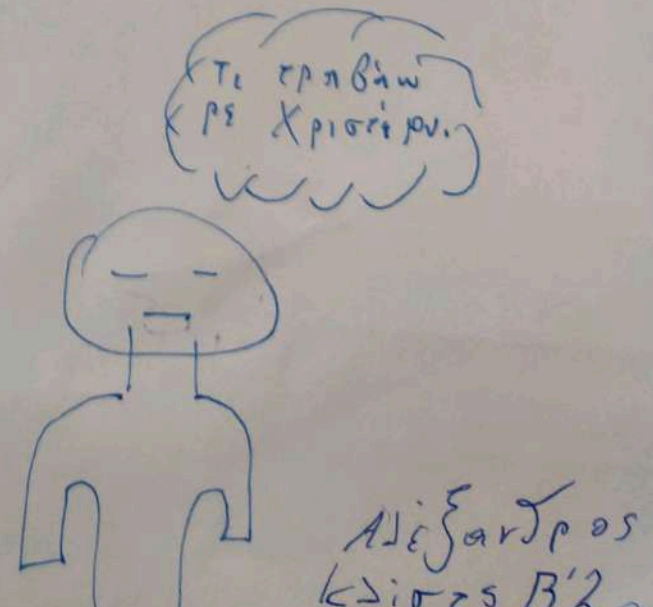 Τι τραβάω
ρε Χριστέ μου.
Αλέξανδρος
Β'2